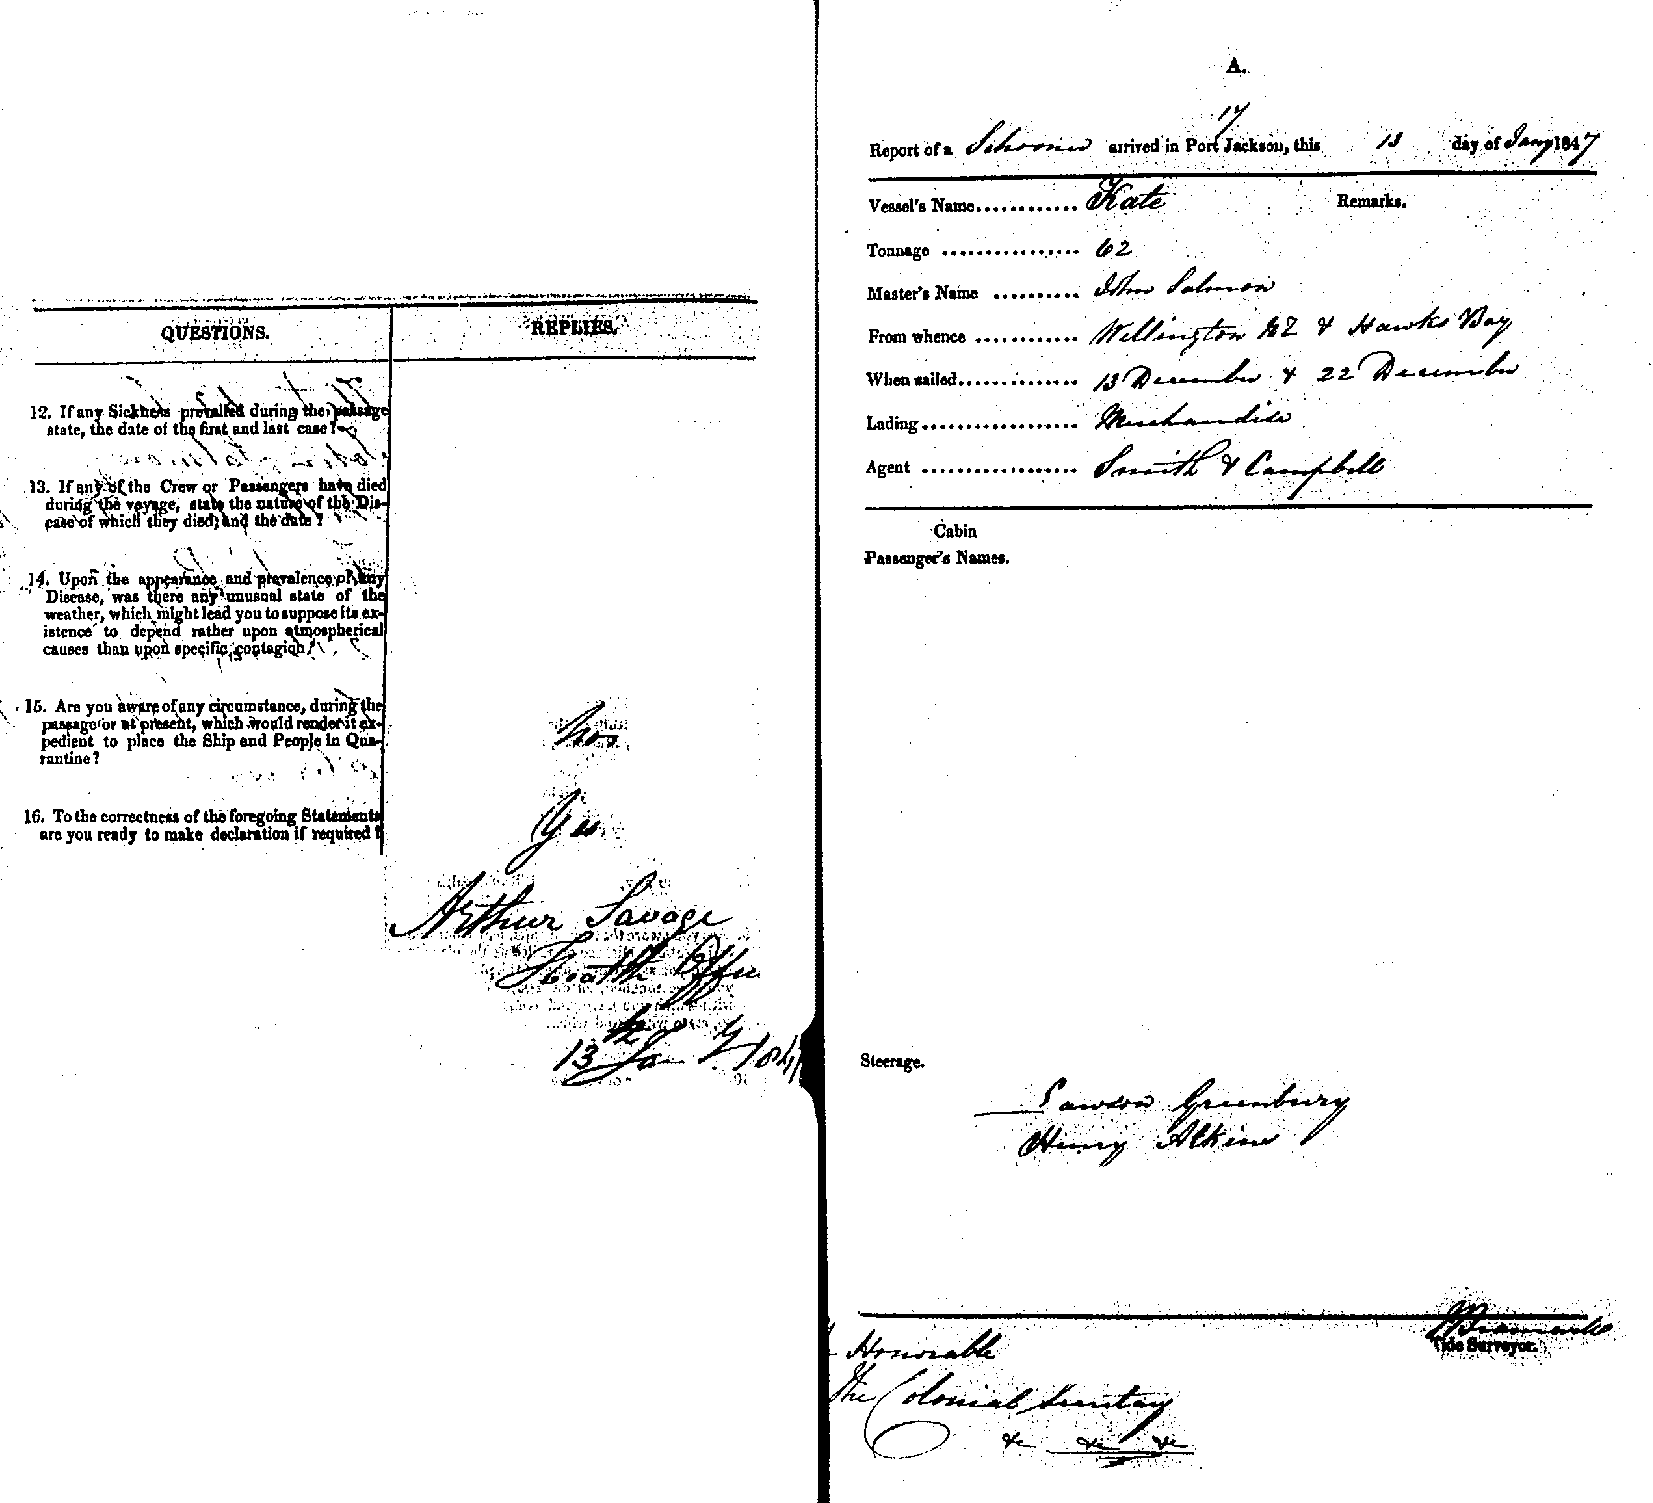 QUESTIONS.
REPLIES.
12. If any Sickness prevailed during the passage
state, the date of the first and last case?
13. If any of the Crew or Passengers have died
during the voyage, state the nature of the Dis-
ease of which they died, and the date?
14. Upon the appearance and prevalence of any
Disease, was there any unusual state of the
weather, which might lead you to suppose its ex-
istence to depend rather upon atmospherical
causes than upon specific contagion?
15. Are you aware of any circumstance, during the
passage or at present, which would render it ex-
pedient to place the Ship and People in Qua-
rantine?
No
16. To the correctness of the foregoing Statements
are you ready to make declaration if required?
Yes
Arthur Savage
Health Officer
13th Jan
A.
17
Report of a Schooner arrived in Port Jackson, this 13 day of Jany 1847
Vessel's Name............ Kate
Remarks.
Tonnage ................ 62
Master's Name .......... John Salmon
From whence ............ Wellington NZ & Hawks Bay
When sailed.............. 13 December & 22 December
Lading.................. Merchandise
Agent .................. Smith & Campbell
Cabin
Passenger's Names.
Steerage.
Lawson Greenbury
Henry Atkins
Tide Surveyor.
Honorable
The Colonial Secretary
&c &c &c